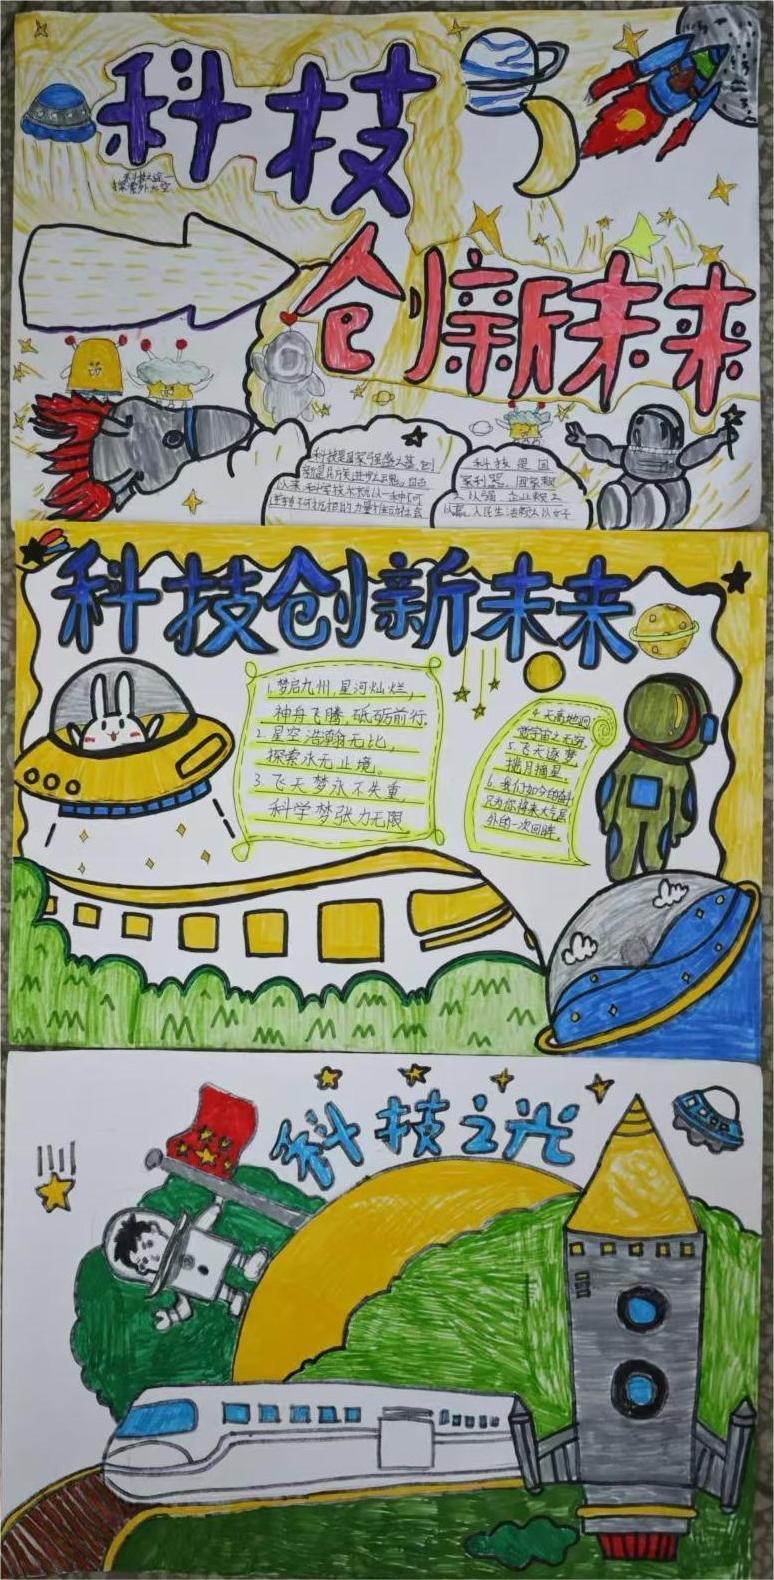 科技
创新未来
科技是国家强盛之基，创
新是民族进步之魂。自古
以来，科学技术就以一种不可
逆转、不可抗拒的力量推动社会
科技是国
家利器，国家赖
之以强，企业赖之
以赢，人民生活赖之以好
科技创新未来
1.梦启九州，星河灿烂，
神舟飞腾，砥砺前行.
2.星空浩瀚无比，
探索永无止境。
3.飞天梦永不失重，
科学梦张力无限.
4.天高地迥
觉宇宙之无穷
5.飞天逐梦
揽月摘星.
6.我们如今的奋斗
只为你将来大气层
外的一次回眸。
科技之光